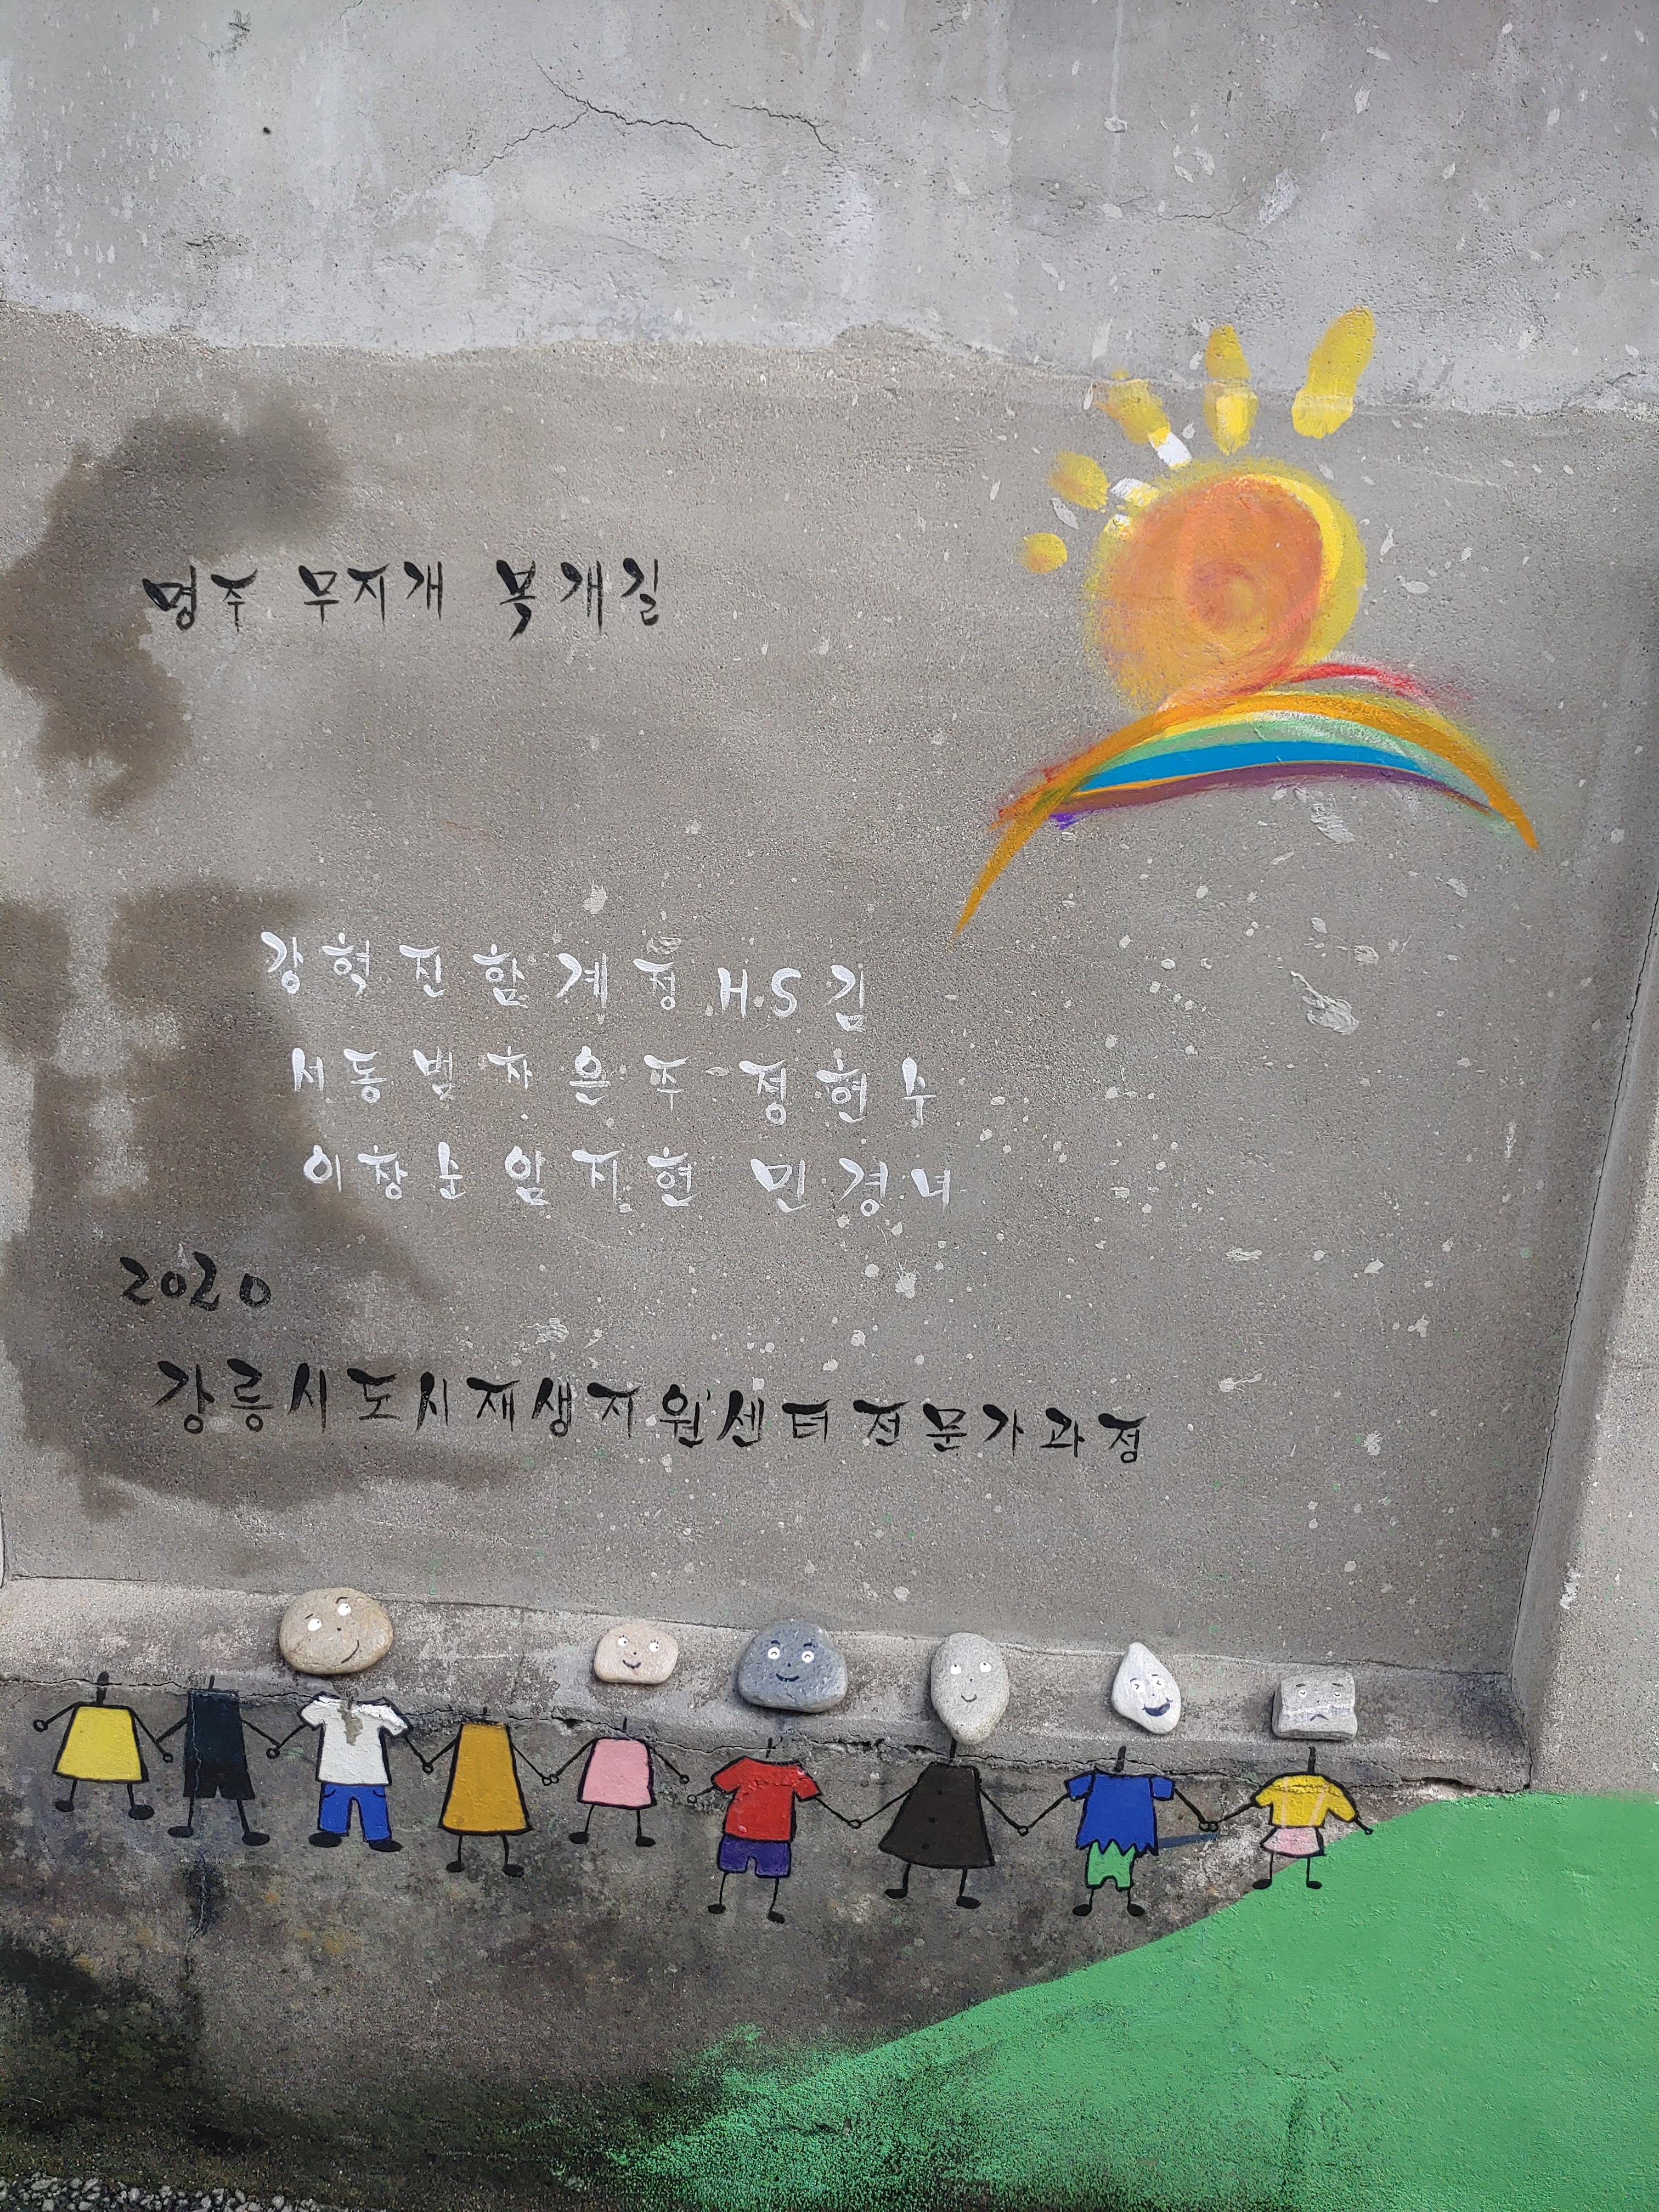 명주 무지개 복개길
강혁진 함계정 HS김
서동범 차은주 정현수
이창순 암지현 민경녀
2020
강릉시도시재생지원센터전문가과정